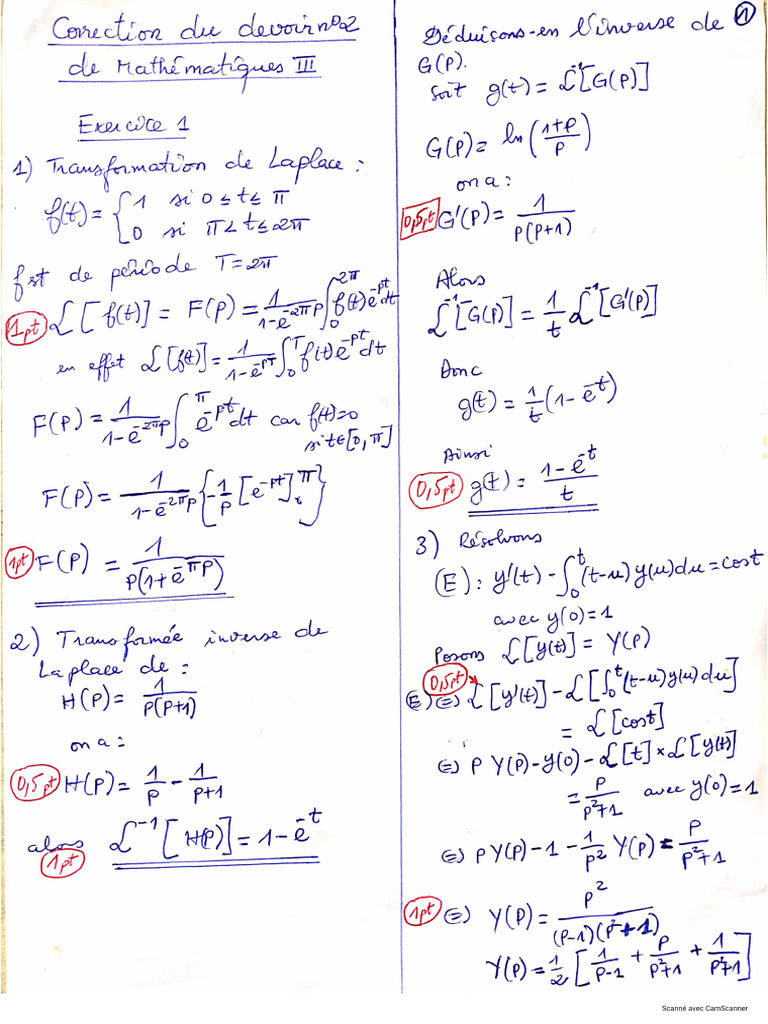 Correction du devoir n°02
de Mathématiques III
Exercice 1
1) Transformation de Laplace :
f(t) = { 1 si 0 ≤ t ≤ π
0 si π < t ≤ 2π
f est de période T = 2π
1pt ℒ[f(t)] = F(p) = 1/(1-e^{-2πp}) ∫_0^{2π} f(t)e^{-pt}dt
en effet ℒ[f(t)] = 1/(1-e^{-pT}) ∫_0^T f(t)e^{-pt}dt
F(p) = 1/(1-e^{-2πp}) ∫_0^π e^{-pt}dt car f(t)=0
si t∈[0,π]
F(p) = 1/(1-e^{-2πp}) {-1/p [e^{-pt}]_0^π}
1pt F(p) = 1/(p(1+e^{-πp}))
2) Transformée inverse de
Laplace de :
H(p) = 1/(p(p+1))
on a :
0,5pt H(p) = 1/p - 1/(p+1)
alors ℒ^{-1}[H(p)] = 1-e^{-t}
1pt
1
Déduisons-en l'inverse de
G(p).
soit g(t) = ℒ^{-1}[G(p)]
G(p) = ln((1+p)/p)
on a :
0,5pt G'(p) = 1/(p(p+1))
Alors
ℒ^{-1}[G(p)] = 1/t ℒ^{-1}[G'(p)]
Donc
g(t) = 1/t (1-e^{-t})
Ainsi
0,5pt g(t) = (1-e^{-t})/t
3) Résolvons
(E) : y'(t) - ∫_0^t (t-u)y(u)du = cost
avec y(0)=1
Posons ℒ[y(t)] = Y(p)
0,5pt
(E) ⇔ ℒ[y'(t)] - ℒ[∫_0^t (t-u)y(u)du]
= ℒ[cost]
⇔ pY(p)-y(0)-ℒ[t]×ℒ[y(t)]
= p/(p²+1) avec y(0)=1
⇔ pY(p)-1-1/p² Y(p) = p/(p²+1)
1pt ⇔ Y(p) = p²/((p-1)(p²+1))
Y(p) = 1/2 [1/(p-1) + p/(p²+1) + 1/(p²+1)]
Scanné avec CamScanner